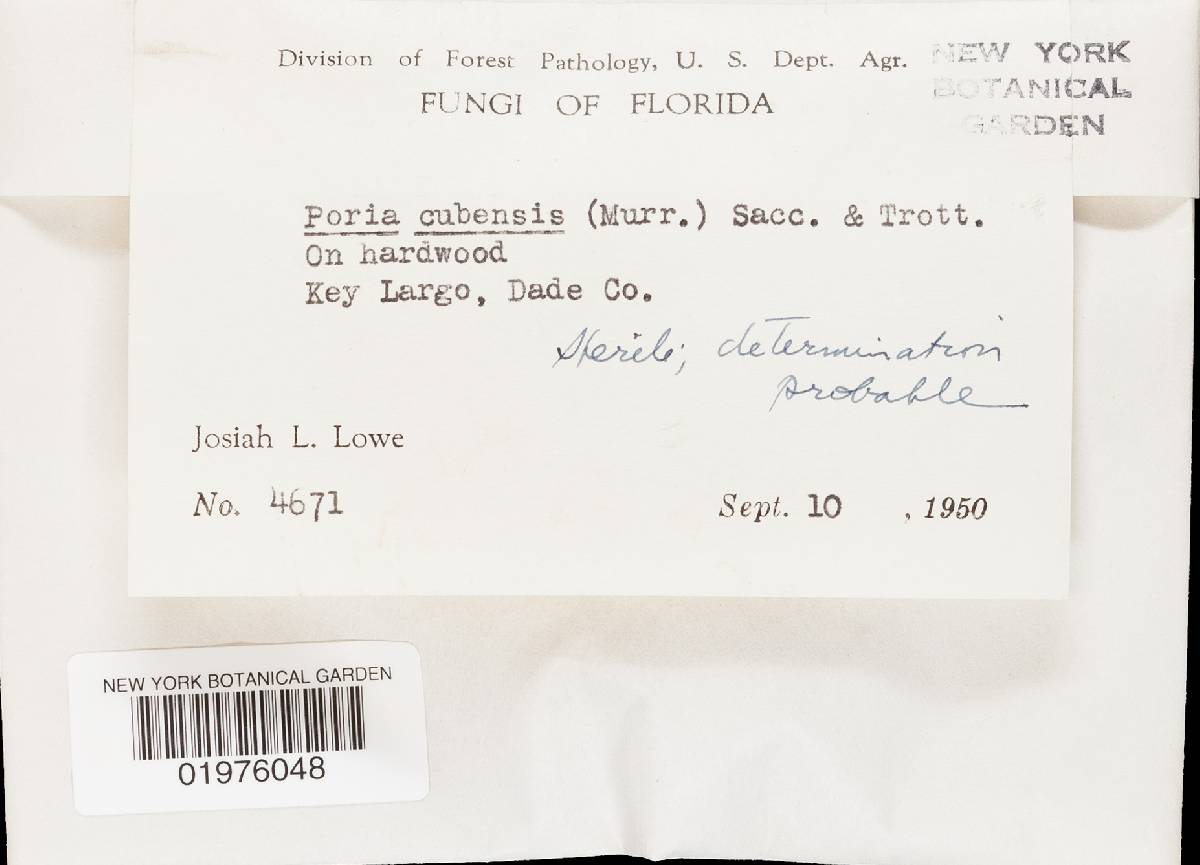 Division of Forest Pathology, U. S. Dept. Agr.
FUNGI OF FLORIDA
NEW YORK
BOTANICAL
GARDEN
Poria cubensis (Murr.) Sacc. & Trott.
On hardwood
Key Largo, Dade Co.
Sterile; determination
probable
Josiah L. Lowe
No. 4671
Sept. 10 , 1950
NEW YORK BOTANICAL GARDEN
01976048